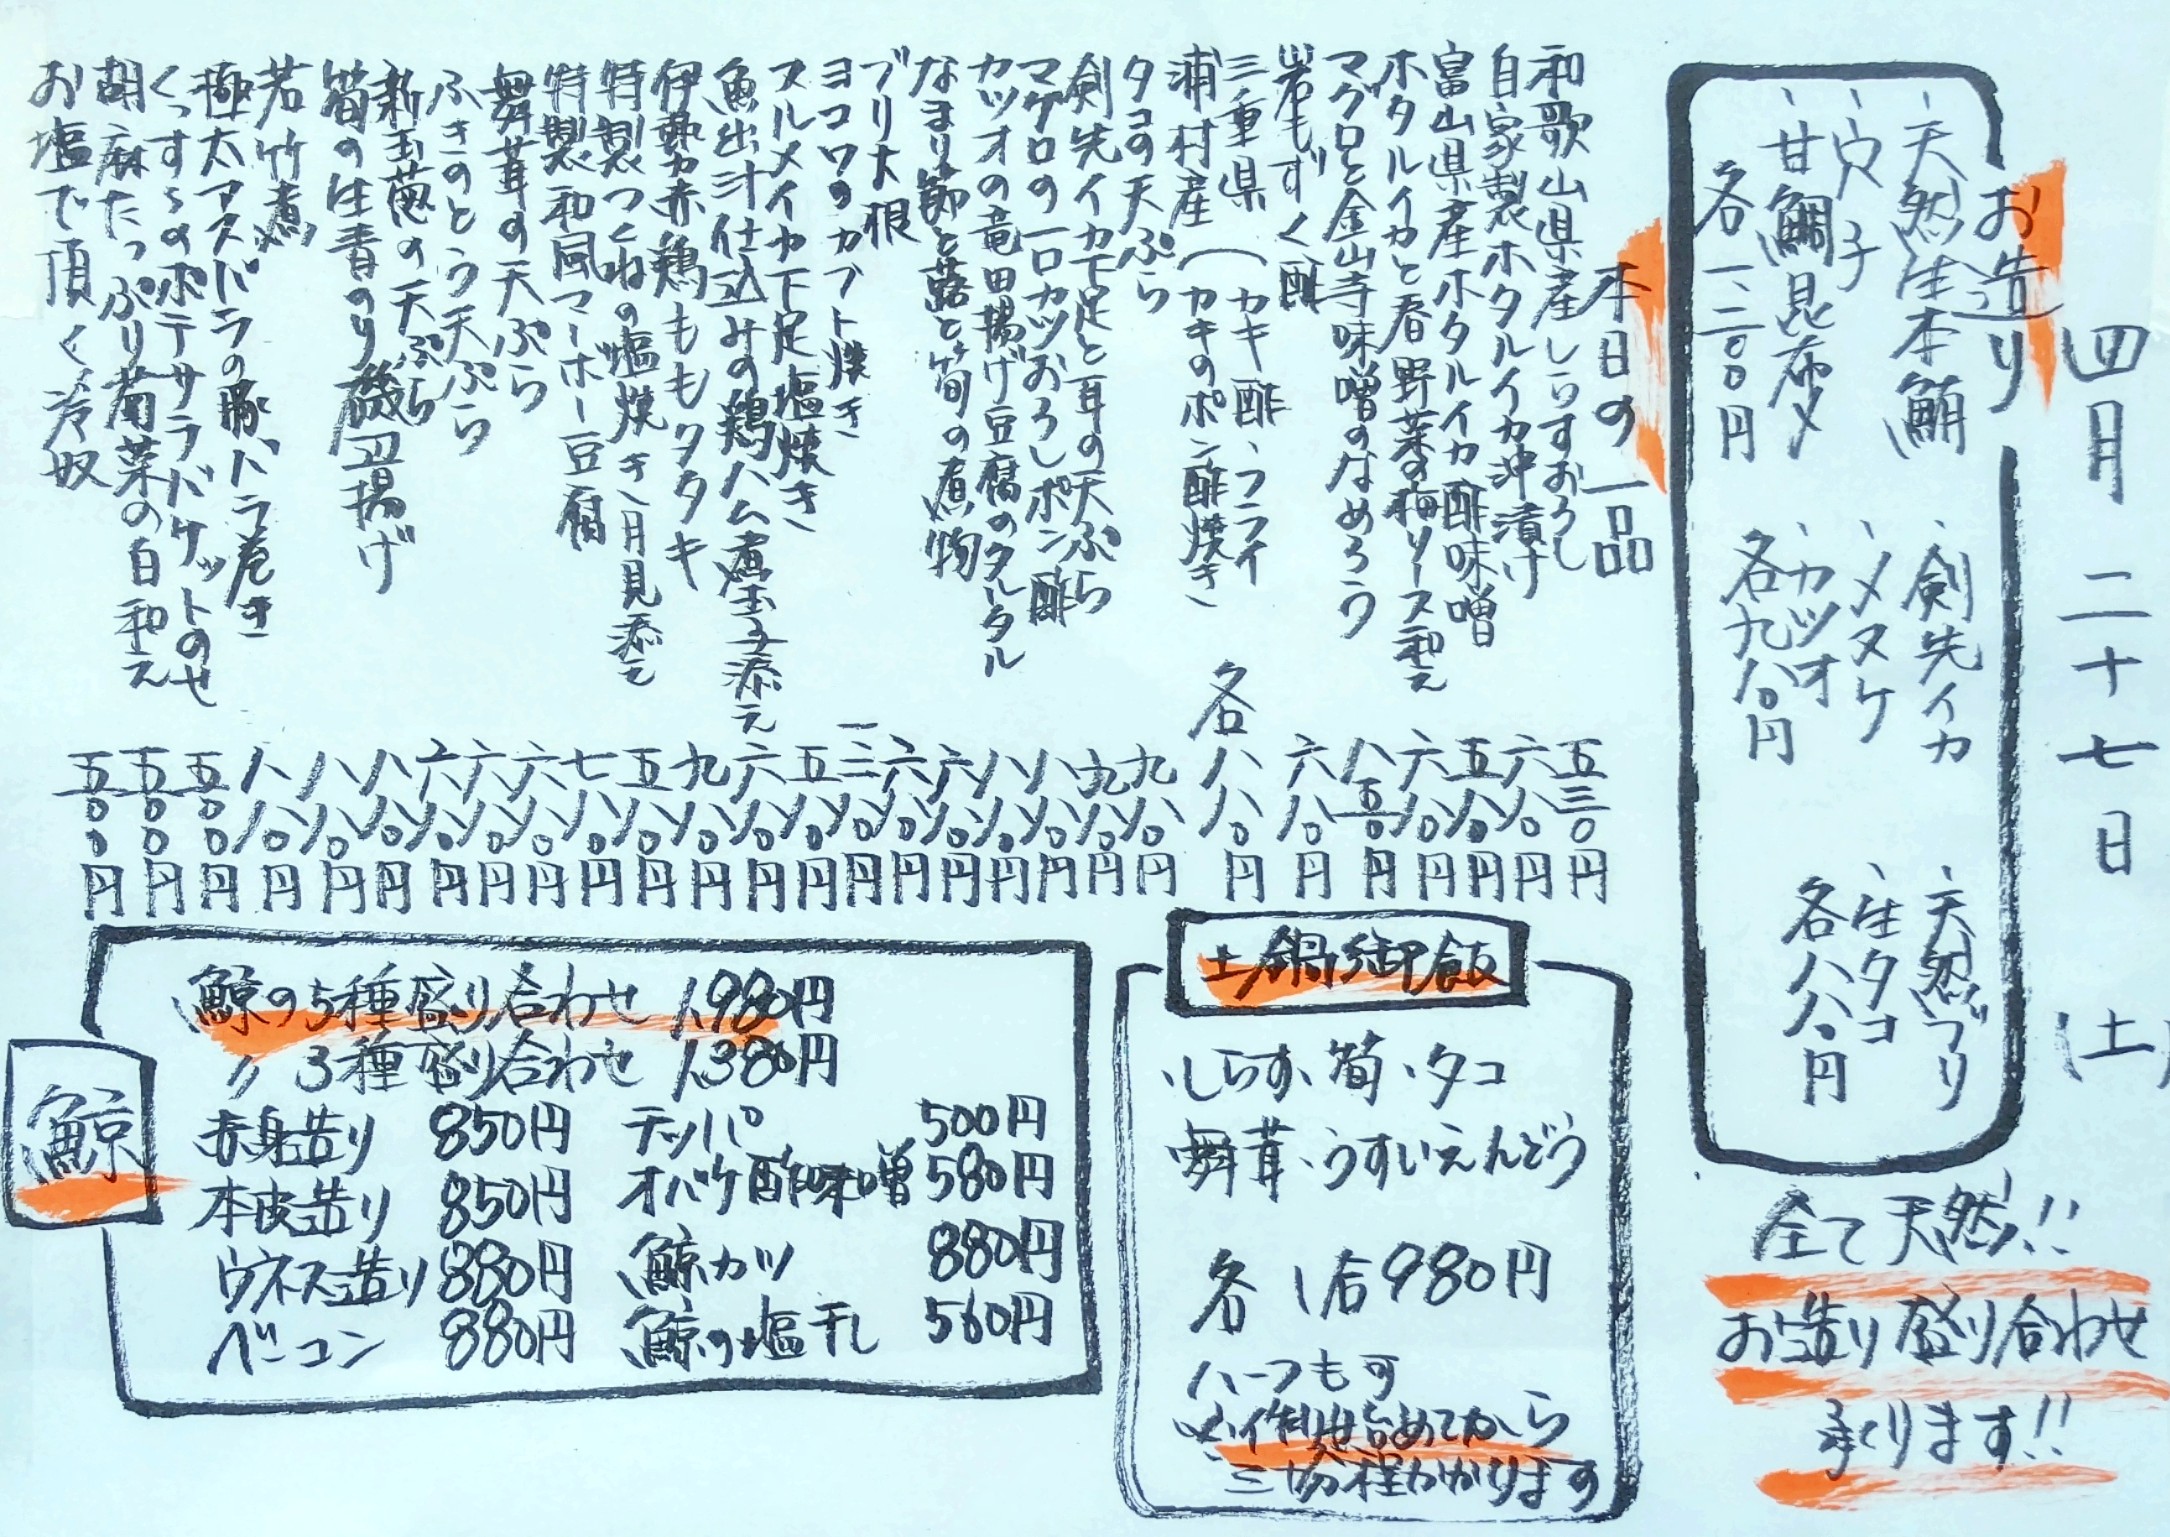 四月二十七日(土)
お造り
、天然生本鮪
、穴子
、甘鯛昆布〆
各一、二〇〇円
、剣先イカ
、メヌケ
、カツオ
各九八〇円
、天然ブリ
、生タコ
各八八〇円
全て天然!!
お造り盛り合わせ
承ります!!
本日の一品
和歌山県産しらすおろし 五三〇円
自家製ホタルイカ沖漬け 六八〇円
富山県産ホタルイカ酢味噌 五八〇円
ホタルイカと春野菜の梅ソース和え 六八〇円
マグロと金山寺味噌のなめろう 八五〇円
岩もずく酢 六八〇円
三重県
浦村産
(カキ酢、フライ
(カキのポン酢焼き
各八八〇円
タコの天ぷら 九八〇円
剣先イカ下足と耳の天ぷら 九八〇円
マグロの一口カツおろしポン酢 八八〇円
カツオの竜田揚げ豆腐のタルタル 八八〇円
なまり節と蕗と筍の煮物 六八〇円
ブリ大根 六八〇円
ヨコワのカブト焼き 一三八〇円
スルメイカ下足塩焼き 五八〇円
魚出汁仕込みの鶏ハム煮玉子添え 六八〇円
伊勢赤鶏ももタタキ 九八〇円
特製つくねの塩焼き、月見添え 五八〇円
特製和風マーボー豆腐 七八〇円
舞茸の天ぷら 六八〇円
ふきのとう天ぷら 六八〇円
新玉葱の天ぷら 六八〇円
筍の生青のり磯辺揚げ 八八〇円
若竹煮 八八〇円
極太アスパラの豚バラ巻き 八八〇円
くっすぅのポテサラバケットのせ 五〇〇円
胡麻たっぷり菊菜の白和え 五〇〇円
お塩で頂く冷奴 五〇〇円
土鍋御飯
、しらす、筍、タコ
舞茸、うすいえんどう
各 1合980円
ハーフも可
※作り始めてから
三十分程かかります
鯨
鯨の5種盛り合わせ 1,980円
〃 3種盛り合わせ 1,380円
赤身造り 850円
本皮造り 850円
ウネス造り 880円
ベーコン 880円
テッパ 500円
オバケ酢味噌 580円
鯨カツ 880円
鯨の塩干し 560円